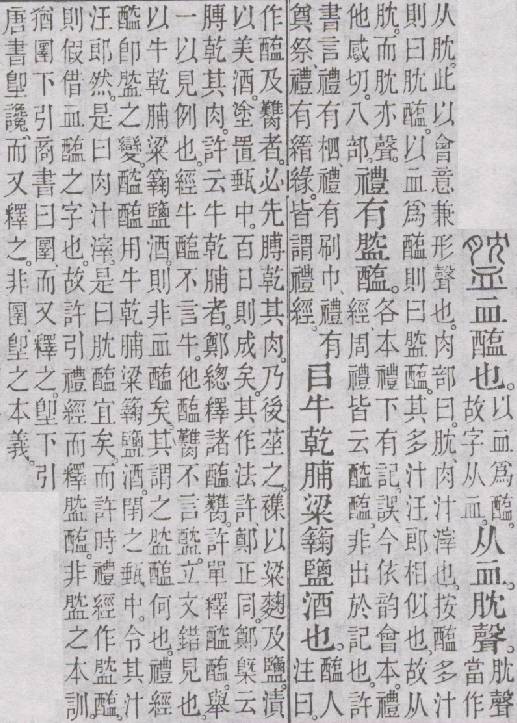 血醢也。以血爲醢。故字从血。从血䏙聲。䏙聲當作
从䏙。此以會意兼形聲也。肉部曰。䏙肉汁滓也。按醢多汁
則曰䏙醢。以血爲醢則曰䘓醢。其多汁汪郎相似也。故从
䏙。而䏙亦聲。他感切。八部。禮有䘓醢。各本禮下有記。誤。今依韵會本。禮經周禮皆云醓醢。非出於記也。許
書言禮有柶。禮有刷巾。禮有奠祭。禮有縉緣。皆謂禮經。㠯牛乾脯粱䉛鹽酒也。醢人注曰。
作醢及臡者。必先膊乾其肉。乃後莝之。襍以粱麴及鹽。漬
以美酒。塗置甄中。百日則成矣。其作法許鄭正同。鄭㮣云
膊乾其肉。許云牛乾脯者。鄭緫釋諸醢臡。許單釋醓醢。舉
一以見例也。經牛醢不言牛。他醢臡不言醓。立文錯見也
以牛乾脯粱䉛鹽酒。則非血醢矣。其謂之䘓醢何也。禮經
醓卽䘓之變。醓醢用牛乾脯粱䉛鹽酒。閉之甄中。令其汁
汪郎然。是曰肉汁滓。是曰䏙醢宜矣。而許時禮經作䘓醢。
則假借血醢之字也。故許引禮經而釋䘓醢。非䘓之本訓。
猶圛下引商書曰圛而又釋之。堲下引
唐書堲讒。而又釋之。非圛堲之本義。